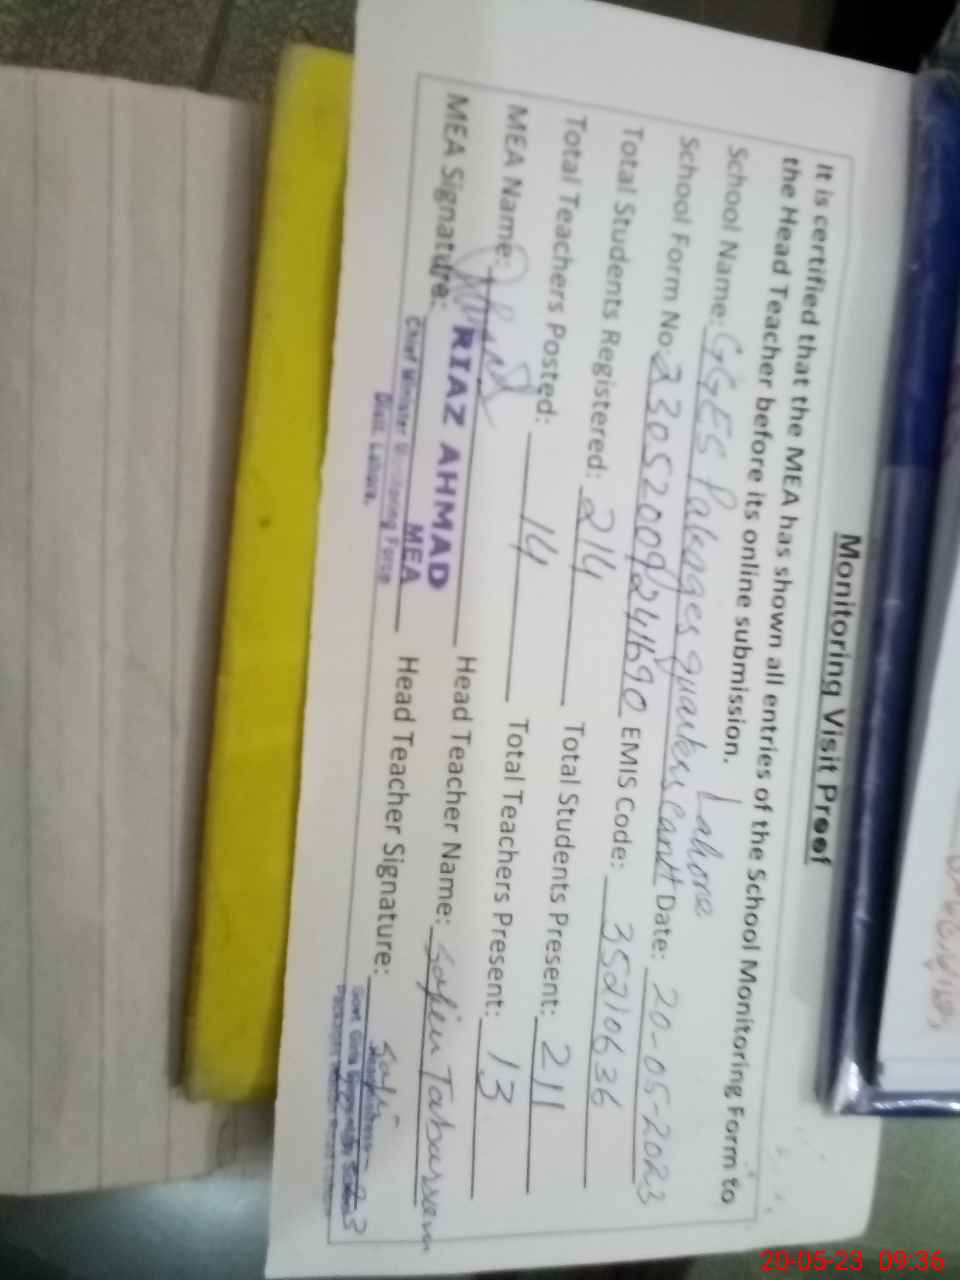 Monitoring Visit Proof
It is certified that the MEA has shown all entries of the School Monitoring Form to
the Head Teacher before its online submission.
School Name: GGES Packages quarters Cantt Lahore Date: 20-05-2023
School Form No: 23052009241690 EMIS Code: 35210636
Total Students Registered: 214 Total Students Present: 211
Total Teachers Posted: 14 Total Teachers Present: 13
MEA Name: RIAZ AHMAD Head Teacher Name: Safia Tabassum
MEA Signature: MEA Head Teacher Signature:
Chief Minister Monitoring Force
Distt. Lahore.
Headmistress
Govt. Girls
20-05-23 09:36